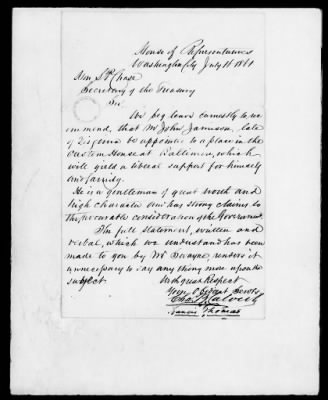 House of Representatives
Washington City July 16 1861
Hon S P Chase
Secretary of the Treasury
Sir
We beg leave earnestly to recom
mend, that Mr John Jamison, late
of Virginia be appointed to a place in the
Custom House at Baltimore, which
will yield a liberal support for himself
and family.
He is a gentleman of great worth and
high character and has strong claims to
the favourable consideration of the Government.
The full statement, written and
verbal, which we understand has been
made to you by Mr Swayne, renders it
unnecessary to say any thing more upon the
subject
With great Respect
Your Obedient Servts
Chas B Calvert
Francis Thomas